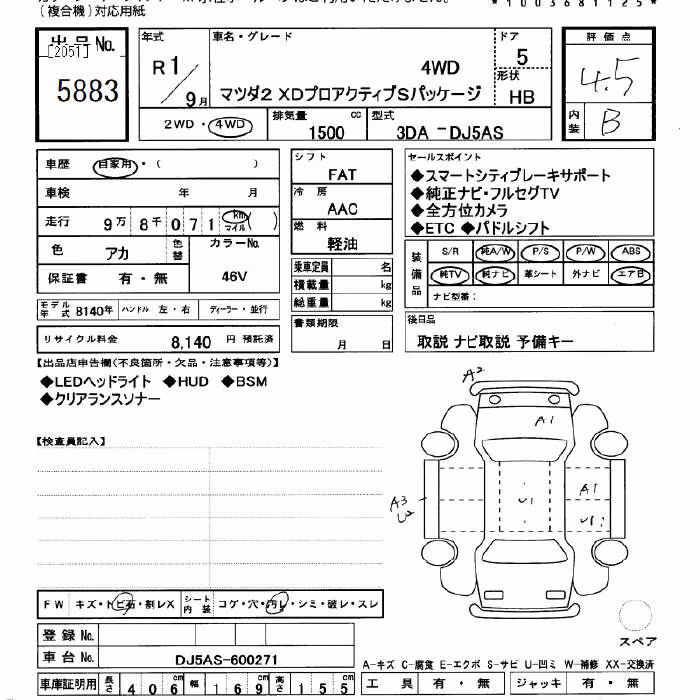 (複合機)対応用紙
*1003681125*
出品No.
[2051]
5883
年式
R1
9月
車名・グレード
4WD
マツダ2 XDプロアクティブSパッケージ
ドア
5
形状
HB
評価点
4.5
内装
B
2WD・4WD
排気量
1500 cc
型式
3DA -DJ5AS
車歴 自家用・( )
車検 年 月
走行 9万 8千 071 km マイル ( )
色 アカ 色替 カラーNo.
保証書 有・無 46V
モデル年式 8140年 ハンドル 左・右 ディーラー・並行
リサイクル料金 8,140 円 預託済
シフト
FAT
冷房
AAC
燃料
軽油
乗車定員 名
積載量 kg
総重量 kg
書類期限
月 日
セールスポイント
◆スマートシティブレーキサポート
◆純正ナビ・フルセグTV
◆全方位カメラ
◆ETC ◆パドルシフト
装備品
S/R 純A/W P/S P/W ABS
純TV 純ナビ 革シート 外ナビ エアB
ナビ型番:
後日品
取説 ナビ取説 予備キー
【出品店申告欄(不良箇所・欠品・注意事項等)】
◆LEDヘッドライト ◆HUD ◆BSM
◆クリアランスソナー
【検査員記入】
A2
A1
A3
U2
U1
A1
U1
スペア
FW キズ・トビ石・割レX シート内装 コゲ・穴・汚レ・シミ・破レ・スレ
登録No.
車台No. DJ5AS-600271
車庫証明用 長さ 406cm 幅 169cm 高さ 155cm
A-キズ C-腐食 E-エクボ S-サビ U-凹ミ W-補修 XX-交換済
工具 有・無 ジャッキ 有・無